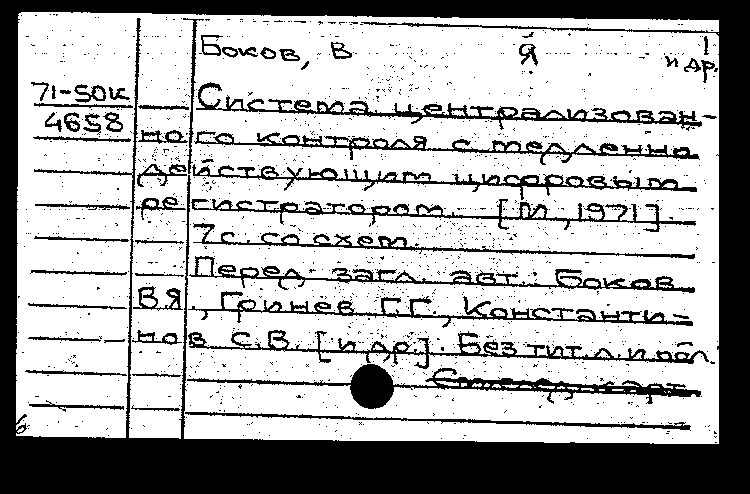 Боков, В Я 1
и др.
71-50к
4658
Система централизован-
ного контроля с медленно
действующим цифровым
регистратором. [М., 1971].
7с. со схем.
Перед загл. авт.: Боков
В Я., Гринев Г.Г., Константи-
нов С.В. [и др.]. Без тит. л. и обл.
См. след. карт.